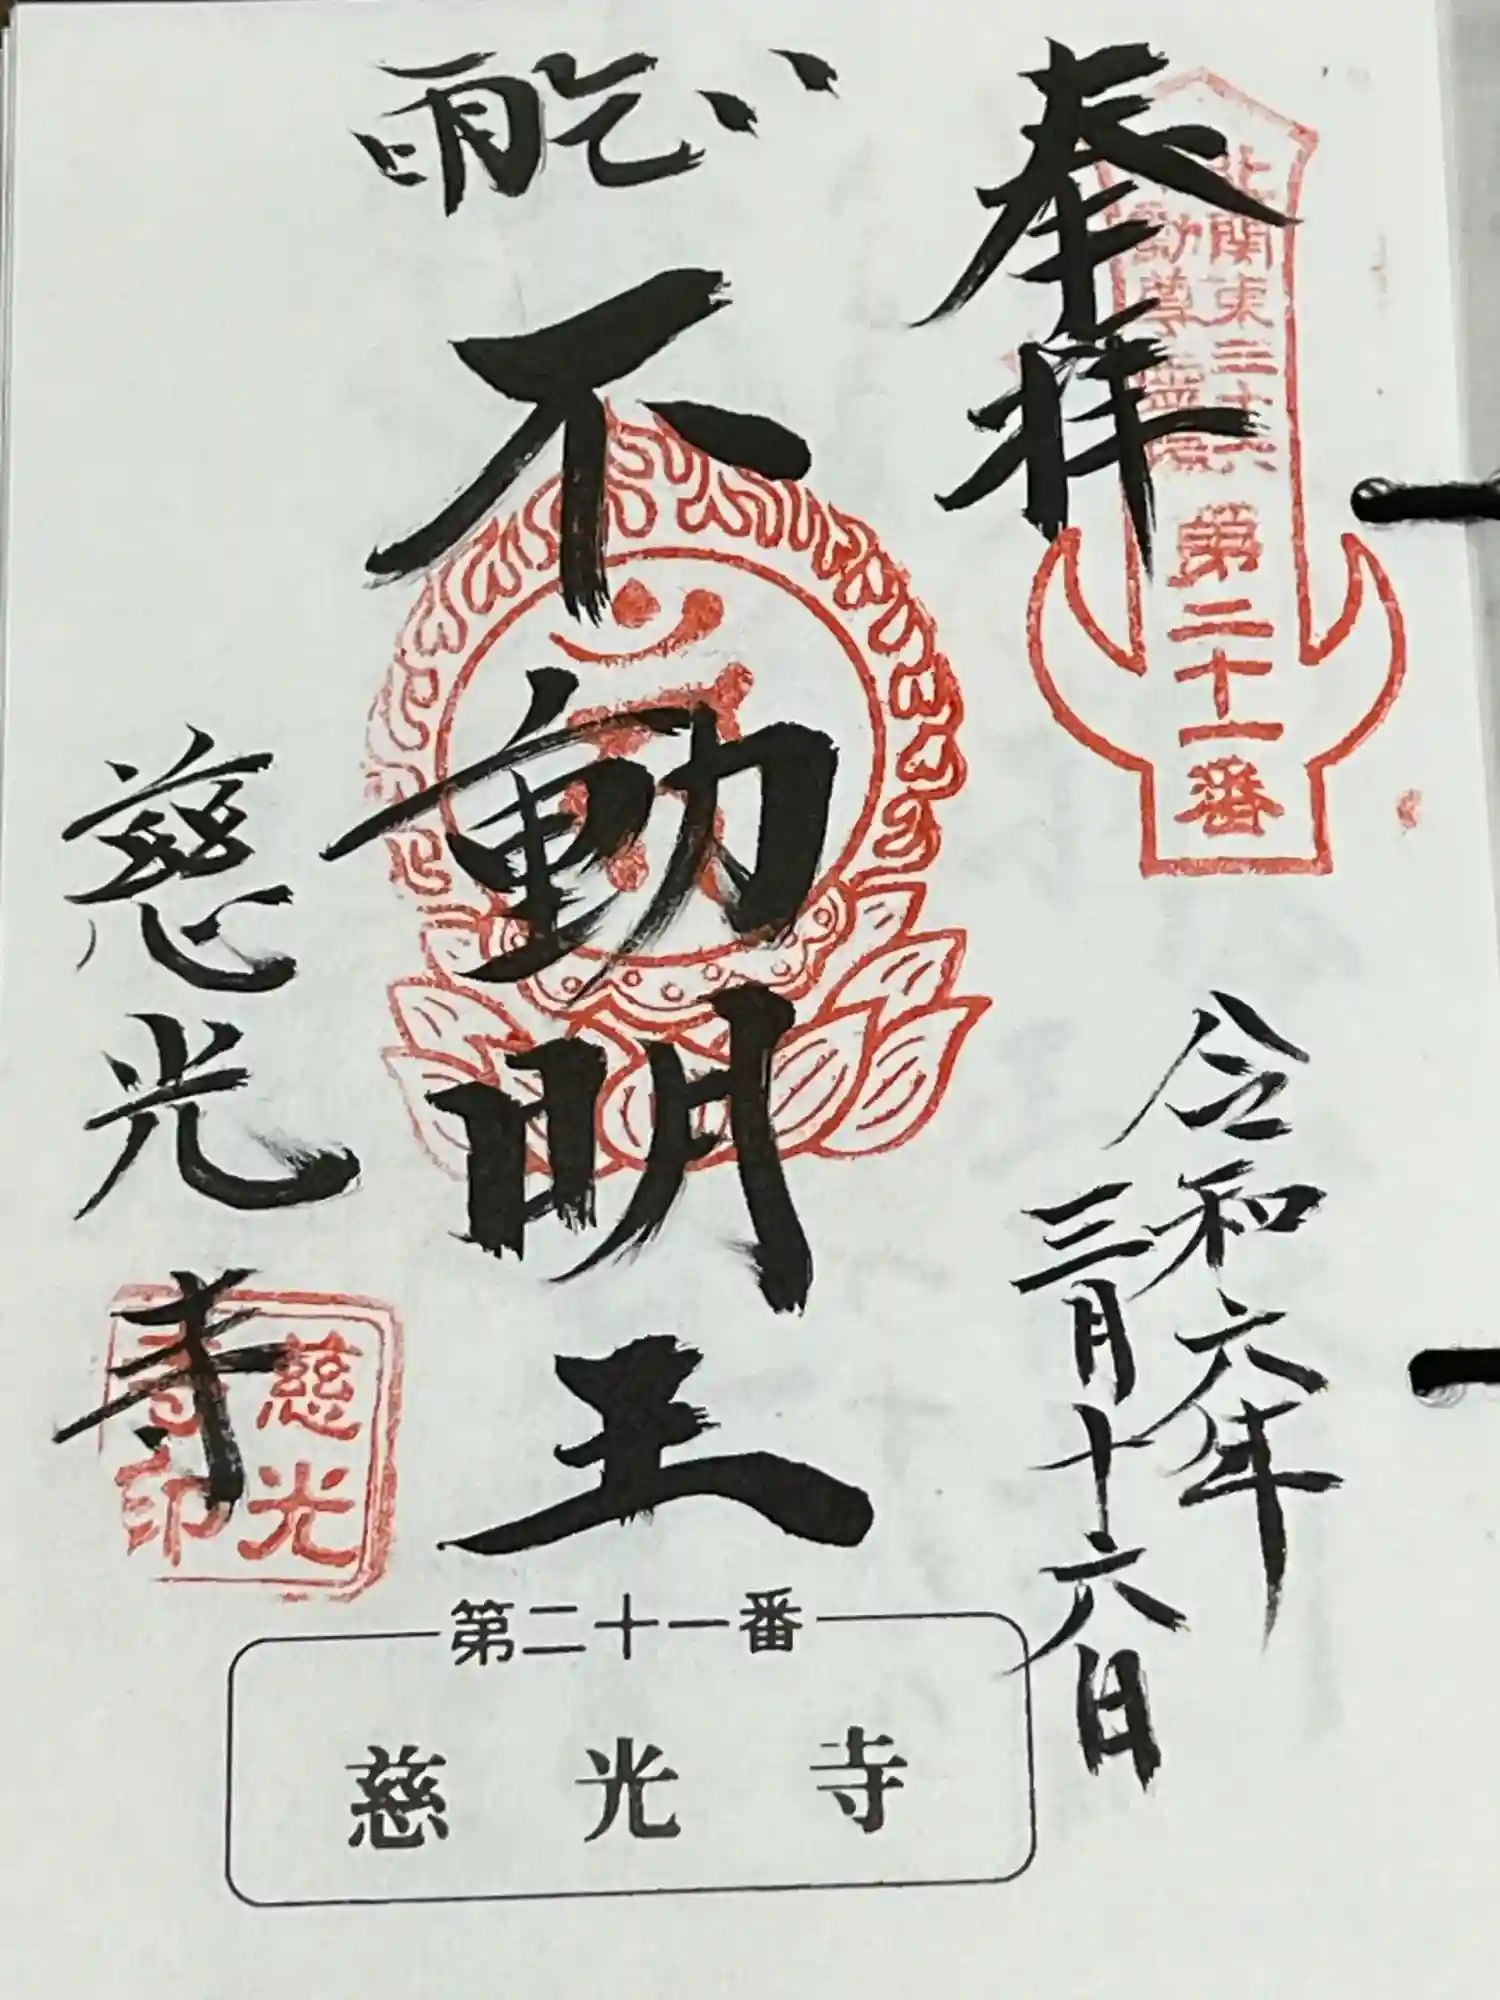 奉拝
北関東三十六
不動尊霊場
第二十一番
令和六年
三月十六日
雨乞い
不動明王
慈光寺
慈光
寺印
第二十一番
慈光寺